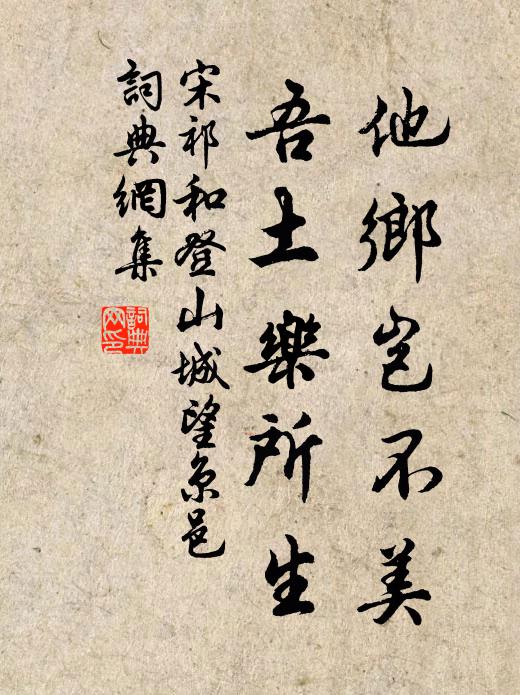 他鄉岂不美
吾土樂所生
宋祁和登山城望京邑
詞典網集
詞典
网印